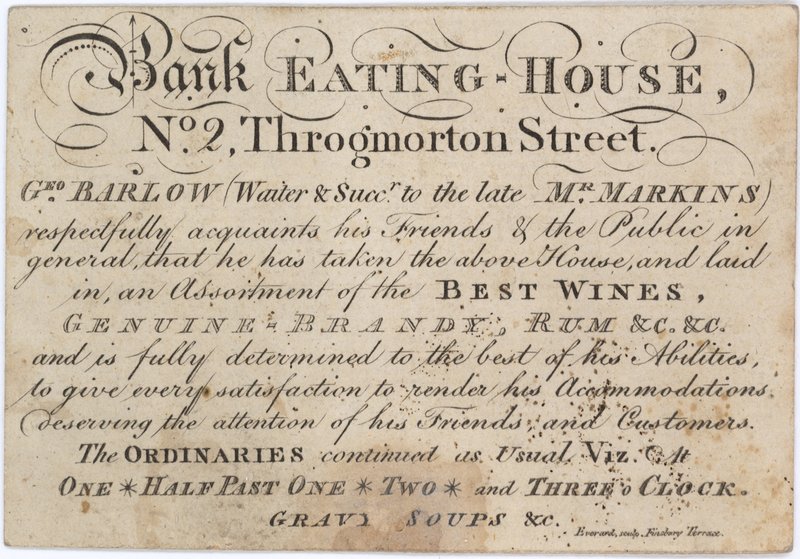 Bank EATING-HOUSE,
No. 2, Throgmorton Street.
GEO. BARLOW (Waiter & Succr. to the late MR. MARKINS)
respectfully acquaints his Friends & the Public in
general, that he has taken the above House, and laid
in, an Assortment of the BEST WINES,
GENUINE-BRANDY, RUM &C. &C.
and is fully determined to the best of his Abilities,
to give every satisfaction to render his Accommodations
deserving the attention of his Friends, and Customers.
The ORDINARIES continued as Usual VIZ. At
ONE * HALF PAST ONE * TWO * and THREE o CLOCK.
GRAVY SOUPS &c.
Everard, sculp. Finsbury Terrace.